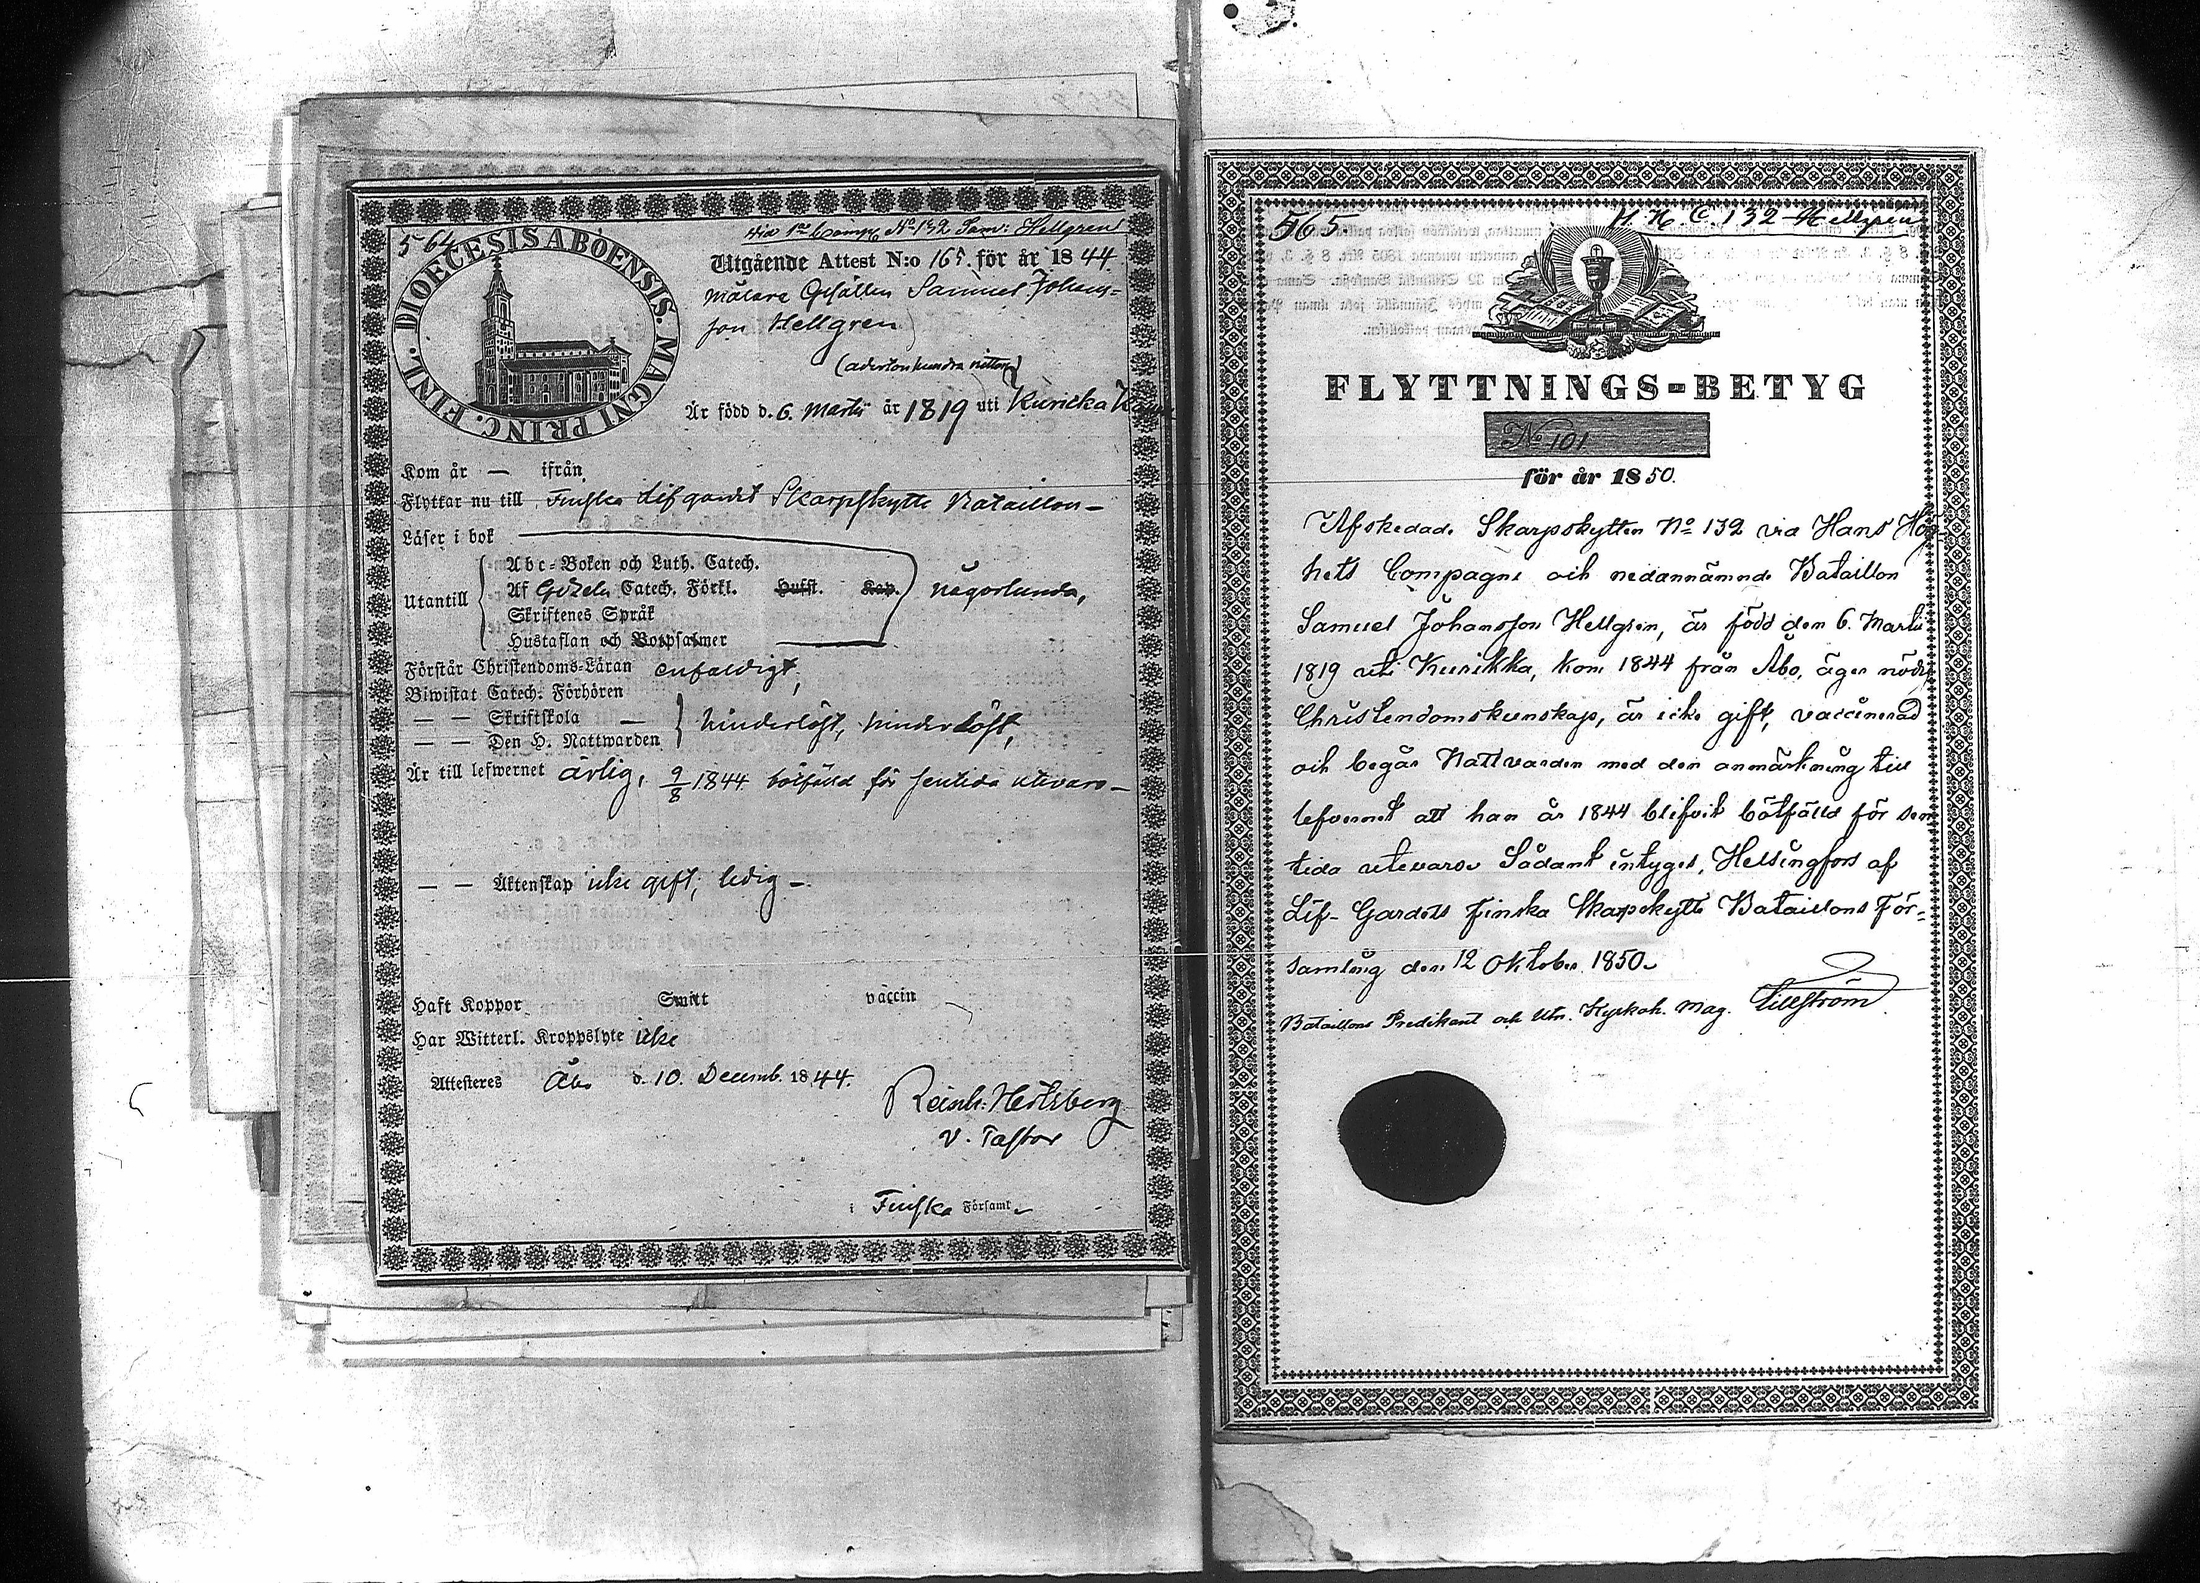 564
vid 1ra Comp. No 132 Sam: Hellgren
FINL. DIOECESIS ABOENSIS. MAGNI PRINC.
Utgående Attest N:o 165. för år 1844.
Målare Gesällen Samuel Johans=
son Hellgren
(adertonhundra nitton)
Är född d. 6. Martii år 1819 uti Kuricka
Kom år — ifrån
Flyttar nu till Finska Lifgardes Skarpskytte Bataillon —
Läser i bok
Utantill
Abc-Boken och Luth. Catech.
Af Gezelii Catech. Förkl. Hufst. Kap. någorlunda,
Skriftenes Språk
Hustaflan och Botpsalmer
Förstår Christendoms-Läran enfaldigt,
Biwistat Catech. Förhören
— — Skriftskola — hinderlöst, hinderlöst,
— — Den H. Nattwarden
Är till lefwernet ärlig, 9/8 1844 bötfälld för sentida utevaro —
— — Äktenskap icke gift, ledig —
Haft Koppor Smitt vaccin
Har Witterl. Kroppslyte icke
Attesteres Åbo d. 10. Decemb. 1844.
Reinh: Hertzberg
V. Pastor
i Finska Församl.
565
H. H. C. 132 Hellgren
FLYTTNINGS-BETYG
No 101
för år 1850.
Afskedade Skarpskytten No 132 vid Hans Hög
hets Compagni och nedannämnde Bataillon
Samuel Johansson Hellgren, är född den 6. Martii
1819 uti Kurikka, kom 1844 från Åbo, äger nödig
Christendomskunskap, är icke gift, vaccinerad
och begår Nattvarden med den anmärkning till
lefvernet att han år 1844 blifvit bötfälld för sen
tida utevaro. Sådant intygas, Helsingfors af
Lif-Gardets Finska Skarpskytte Bataillons För=
samling den 12 Oktober 1850.
Bataillons Predikant och Utn. Kyrkoh. Mag. Lillström